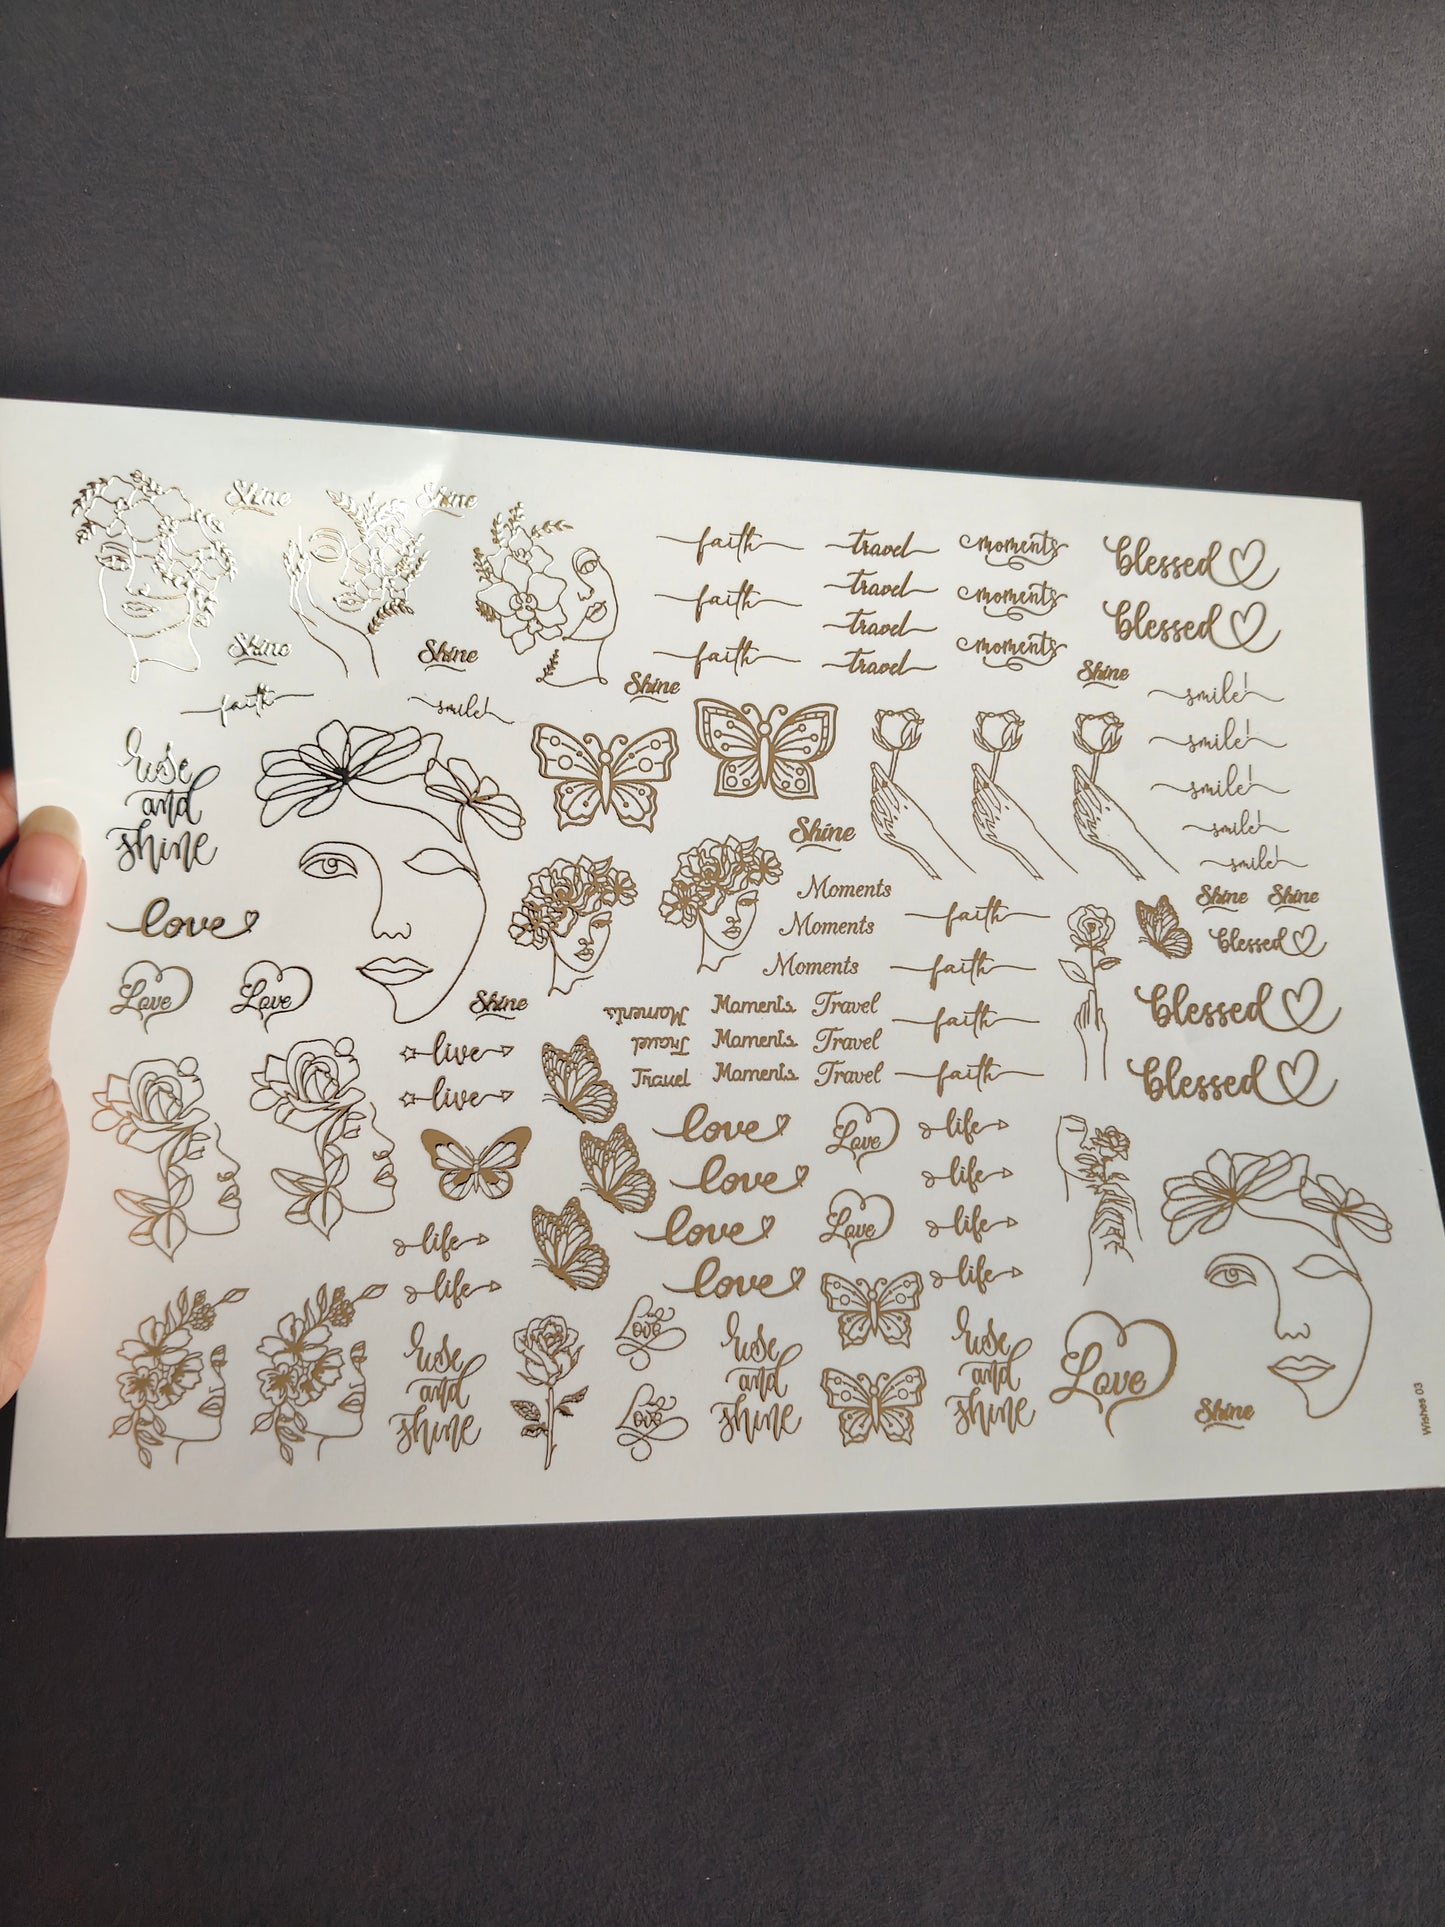 Shine
Shine
faith
travel
moments
blessed
travel
faith
moments
blessed
travel
Shine
Shine
faith
moments
travel
Shine
Shine
smile!
faith
smile!
smile!
rise
and
shine
smile!
Shine
smile!
smile!
Moments
Shine
Shine
love
Moments
faith
blessed
Moments
faith
Love
Love
Shine
Moments
Moments
Travel
faith
blessed
live
Travel
Moments
Travel
live
Travel
Moments
Travel
faith
blessed
love
Love
life
love
life
life
love
Love
life
life
love
life
rise
and
shine
Love
rise
and
shine
rise
and
shine
Love
Love
Shine
Wishes 03